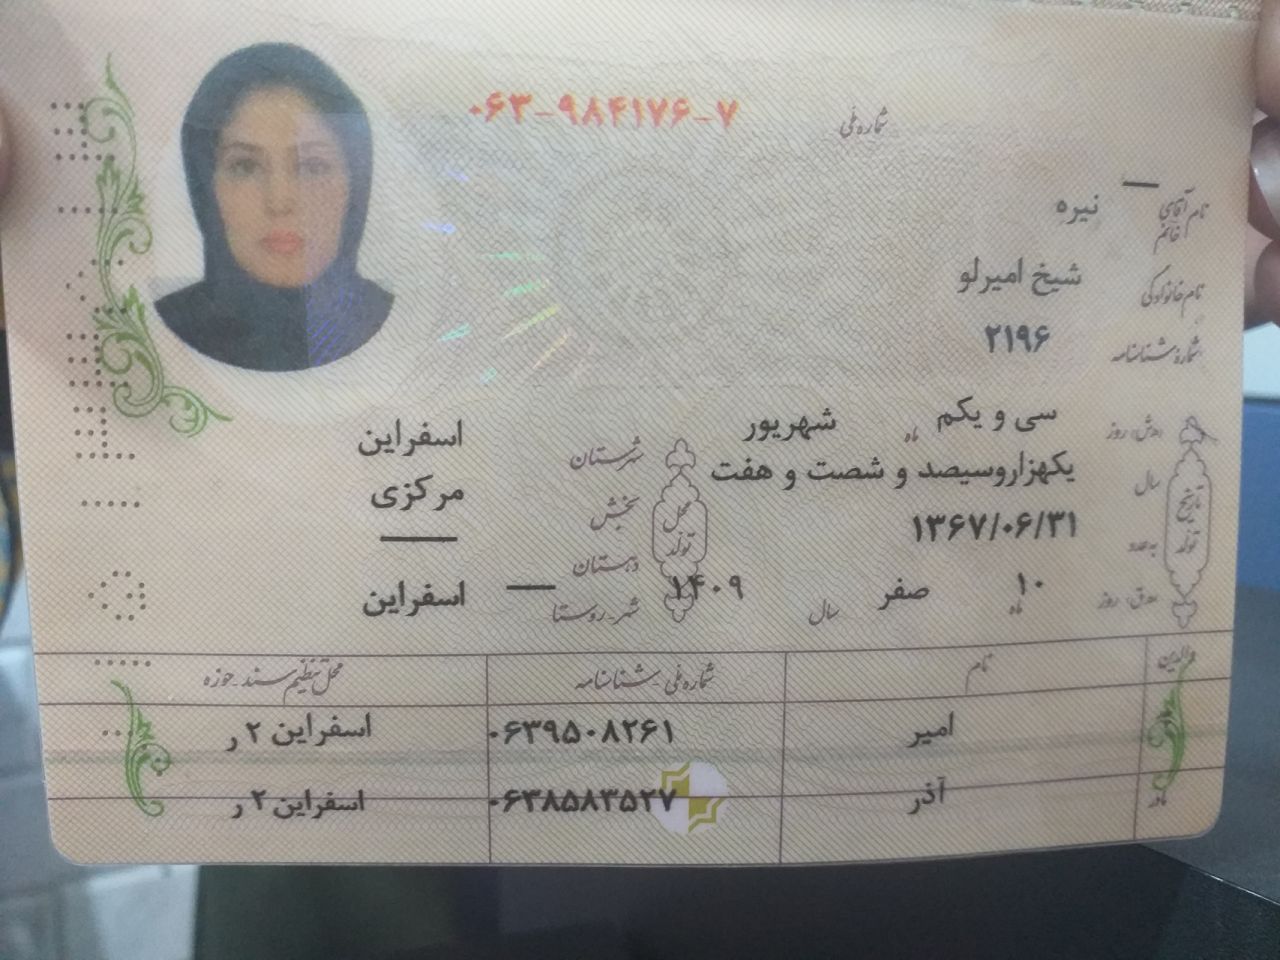 شماره ملی ۰۶۳-۹۸۴۱۷۶-۷
نام آقای خانم — نیره
نام خانوادگی شیخ امیرلو
شماره شناسنامه ۲۱۹۶
تاریخ تولد
هـ.ش: روز سی و یکم ماه شهریور
سال یکهزاروسیصد و شصت و هفت
به عدد ۱۳۶۷/۰۶/۳۱
هـ.ق: روز ۱۰ ماه صفر سال ۱۴۰۹
محل تولد
شهرستان اسفراین
بخش مرکزی
دهستان —
شهر-روستا — اسفراین
والدین نام شماره ملی-شناسنامه محل تنظیم سند-حوزه
امیر ۰۶۳۹۵۰۸۲۶۱ اسفراین ۲ ر
مادر آذر ۰۶۳۸۵۸۳۵۲۷ اسفراین ۲ ر